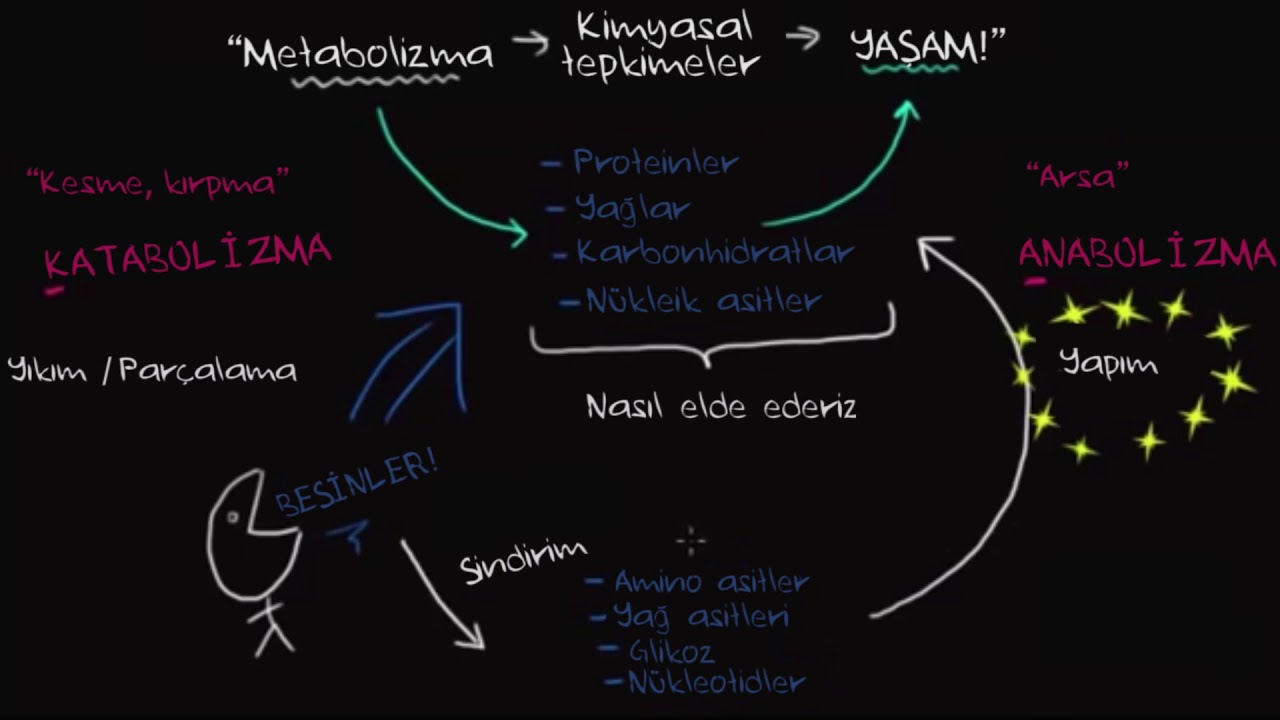 “Metabolizma → Kimyasal tepkimeler → YAŞAM!”
- Proteinler
- Yağlar
- Karbonhidratlar
- Nükleik asitler
Nasıl elde ederiz
“Kesme, kırpma”
KATABOLİZMA
Yıkım / Parçalama
“Arsa”
ANABOLİZMA
Yapım
BESİNLER!
Sindirim
- Amino asitler
- Yağ asitleri
- Glikoz
- Nükleotidler